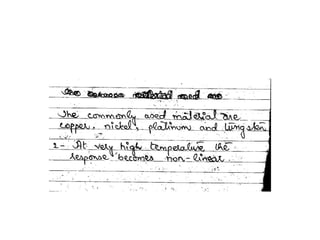 The commonly used material are
copper, nickel, platinum and tungsten
2- At very high temperature the
response becomes non-linear.